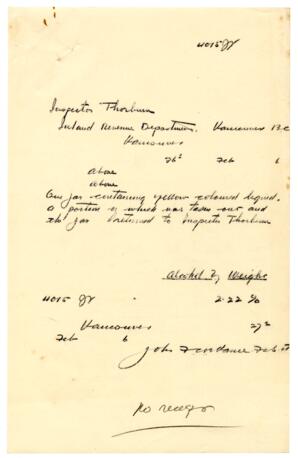 4015 JV
Inspector Thorburn
Inland Revenue Department. Vancouver B.C
Vancouver
Feb 6
above
above
One jar containing yellow coloured liquid.
a portion of which was taken out and
the jar returned to Inspector Thorburn
Alcohol by Weight
4015 JV 2.22 %
Vancouver 27
Feb 6
John F Feb
No receipt